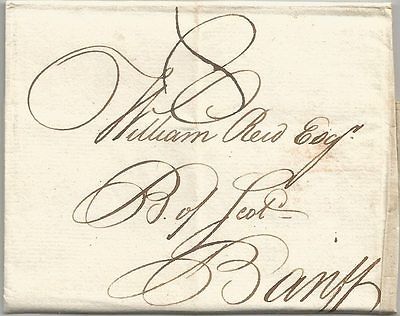 8
William Reid Esqr.
B. of Scotd
Banff